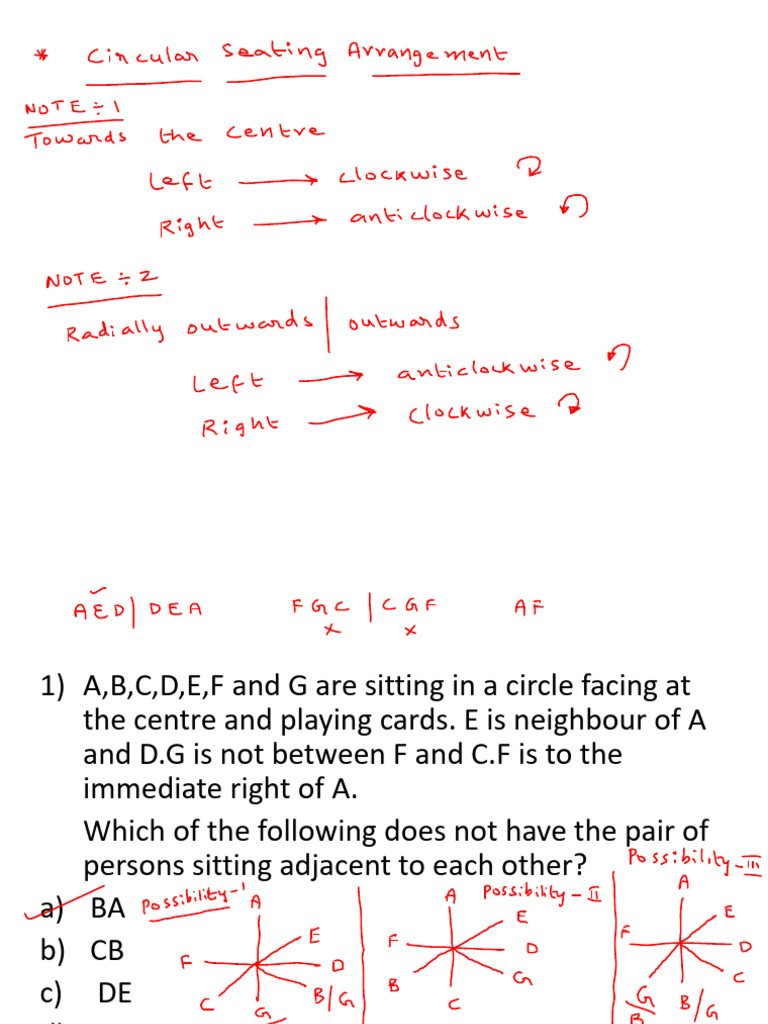 * Circular Seating Arrangement
NOTE ÷ 1
Towards the centre
Left → clockwise
Right → anticlockwise
NOTE ÷ 2
Radially outwards | outwards
Left → anticlockwise
Right → clockwise
AED | DEA FGC | CGF AF
x x
1) A,B,C,D,E,F and G are sitting in a circle facing at
the centre and playing cards. E is neighbour of A
and D.G is not between F and C.F is to the
immediate right of A.
Which of the following does not have the pair of
persons sitting adjacent to each other?
a) BA
b) CB
c) DE
Possibility-I
A
E
F
D
B/G
C
G
Possibility-II
A
E
F
D
G
B
C
Possibility-III
A
E
F
D
C
G
B
B/G